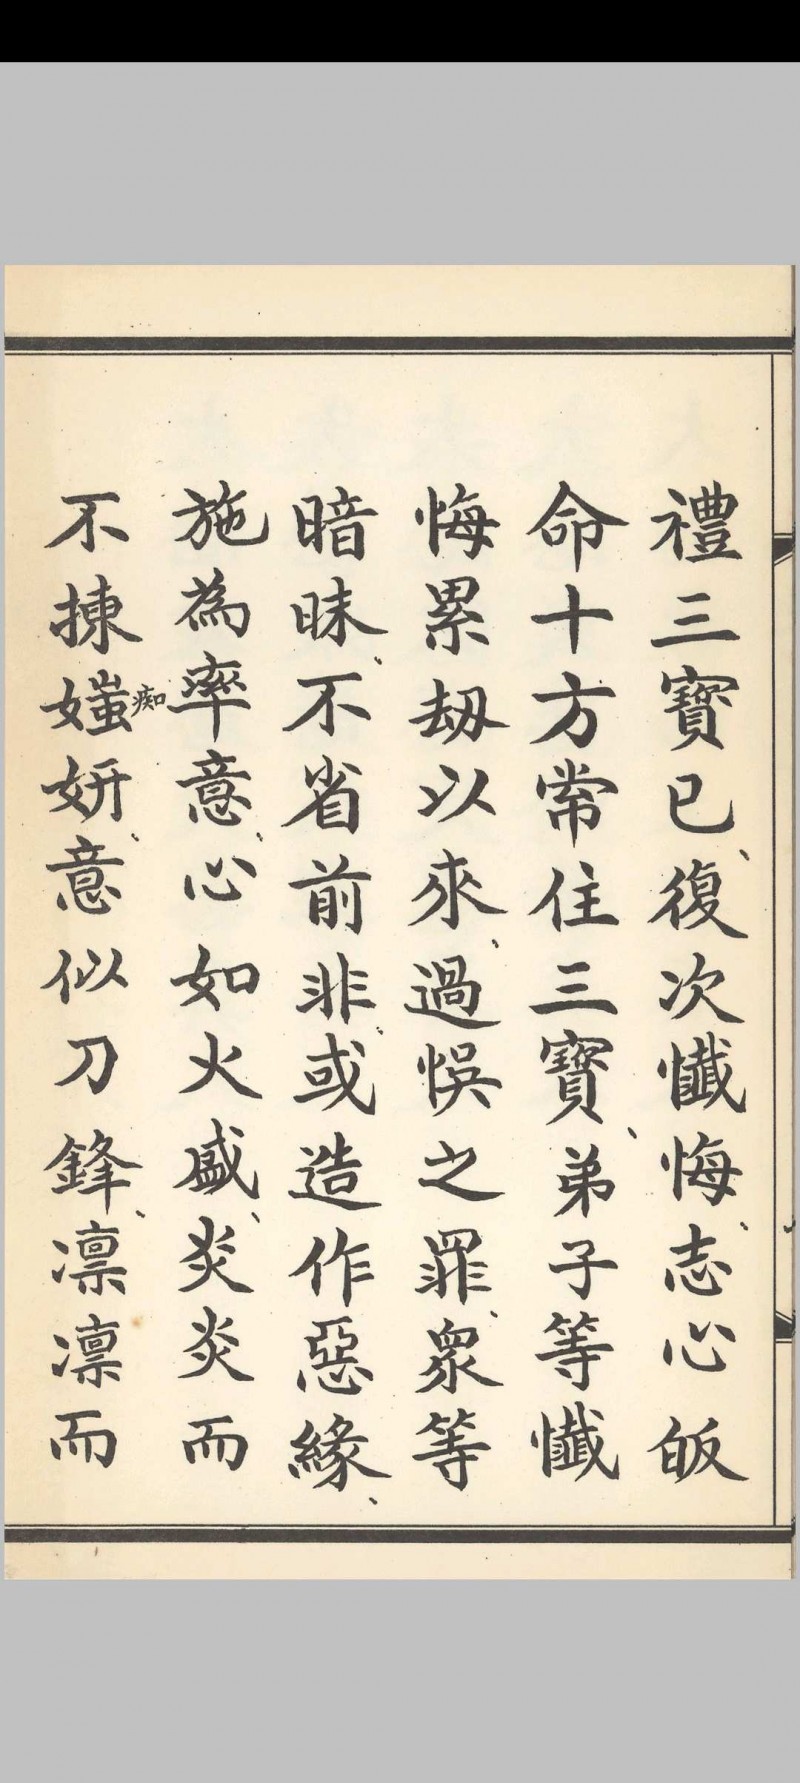 禮三寶已復次懺悔志心皈
命十方常住三寶弟子等懺
悔累劫以來過悞之罪衆等
暗昧不省前非或造作惡緣
施為率意心如火盛炎炎而
不揀媸妍意似刀鋒凛凛而
痴